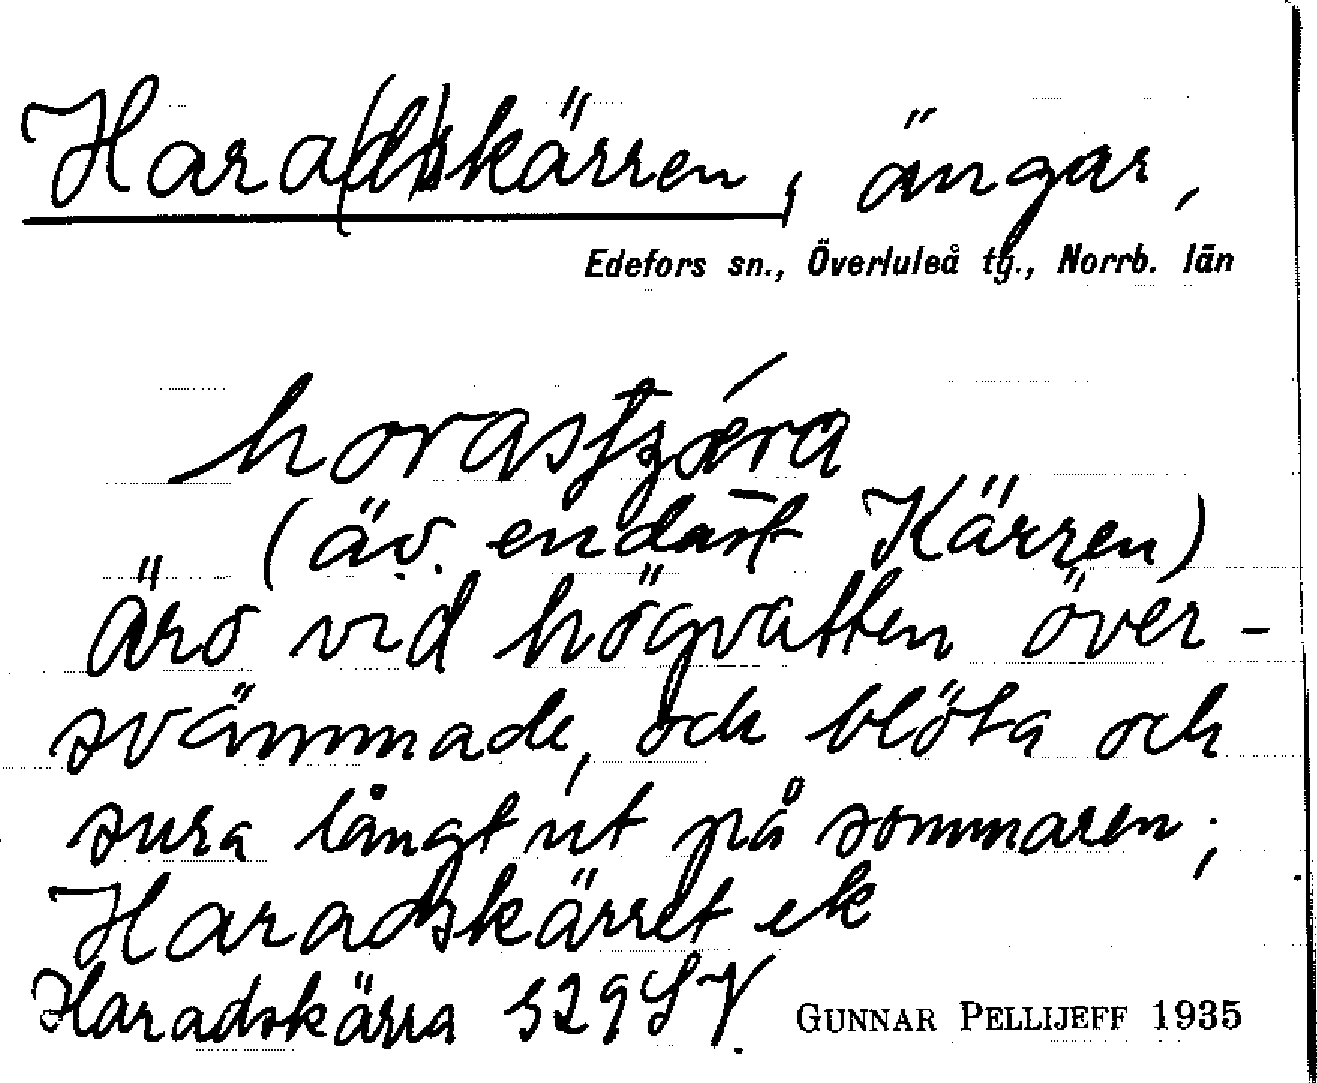 Hara(ds)kärren, ängar,
Edefors sn., Överluleå tg., Norrb. län
(äv. endast Kärren)
Äro vid högvatten över-
svämmade, och blöta och
sura långt ut på sommaren;
Haradskärret ek
Haradskärra S29 SV.
GUNNAR PELLIJEFF 1935